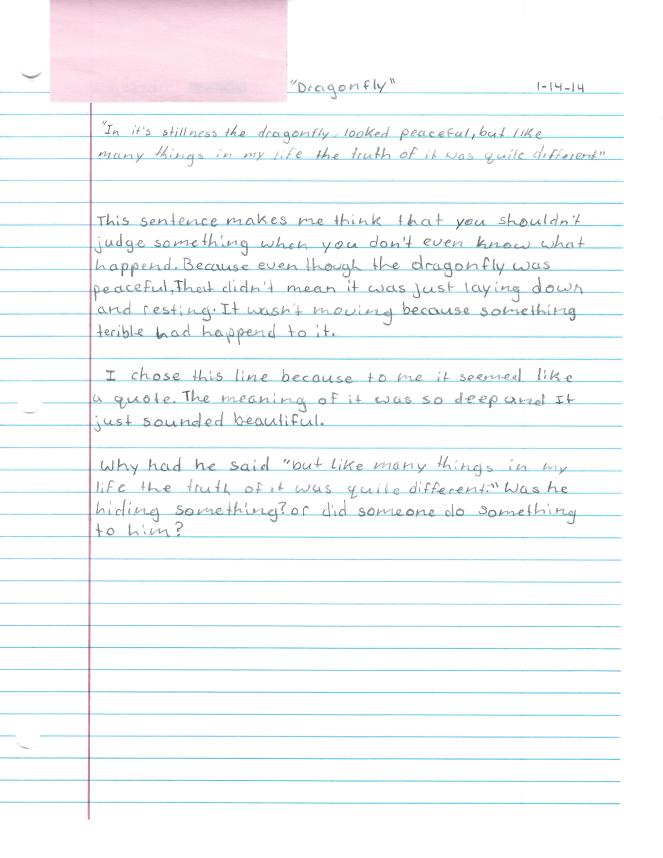 "Dragonfly" 1-14-14
"In it's stillness the dragonfly looked peaceful, but like
many things in my life the truth of it was quite different"
This sentence makes me think that you shouldn't
judge something when you don't even know what
happend. Because even though the dragonfly was
peaceful, That didn't mean it was just laying down
and resting. It wasn't moving because something
terible had happend to it.
I chose this line because to me it seemed like
a quote. The meaning of it was so deep and It
just sounded beautiful.
Why had he said "but like many things in my
life the truth of it was quite different." Was he
hiding something? or did someone do something
to him?